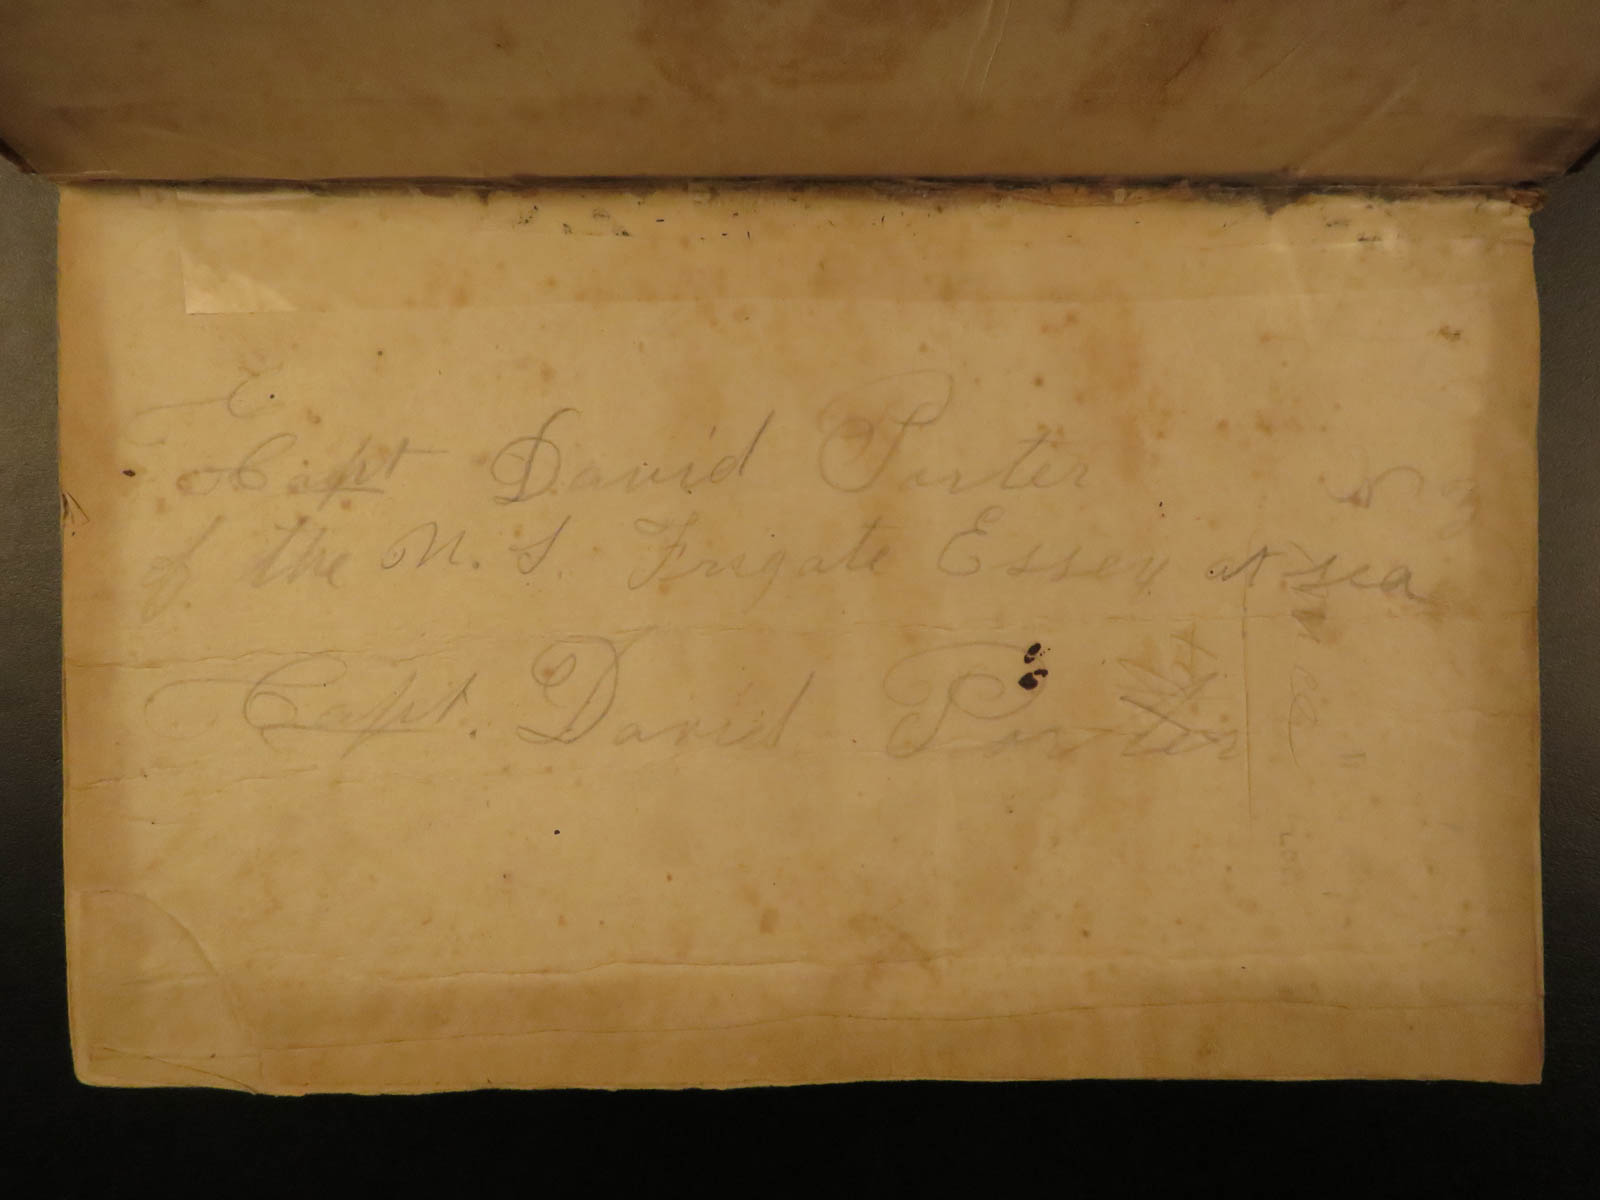 Capt David Porter
of the U. S. Frigate Essex at sea
Capt. David Porter